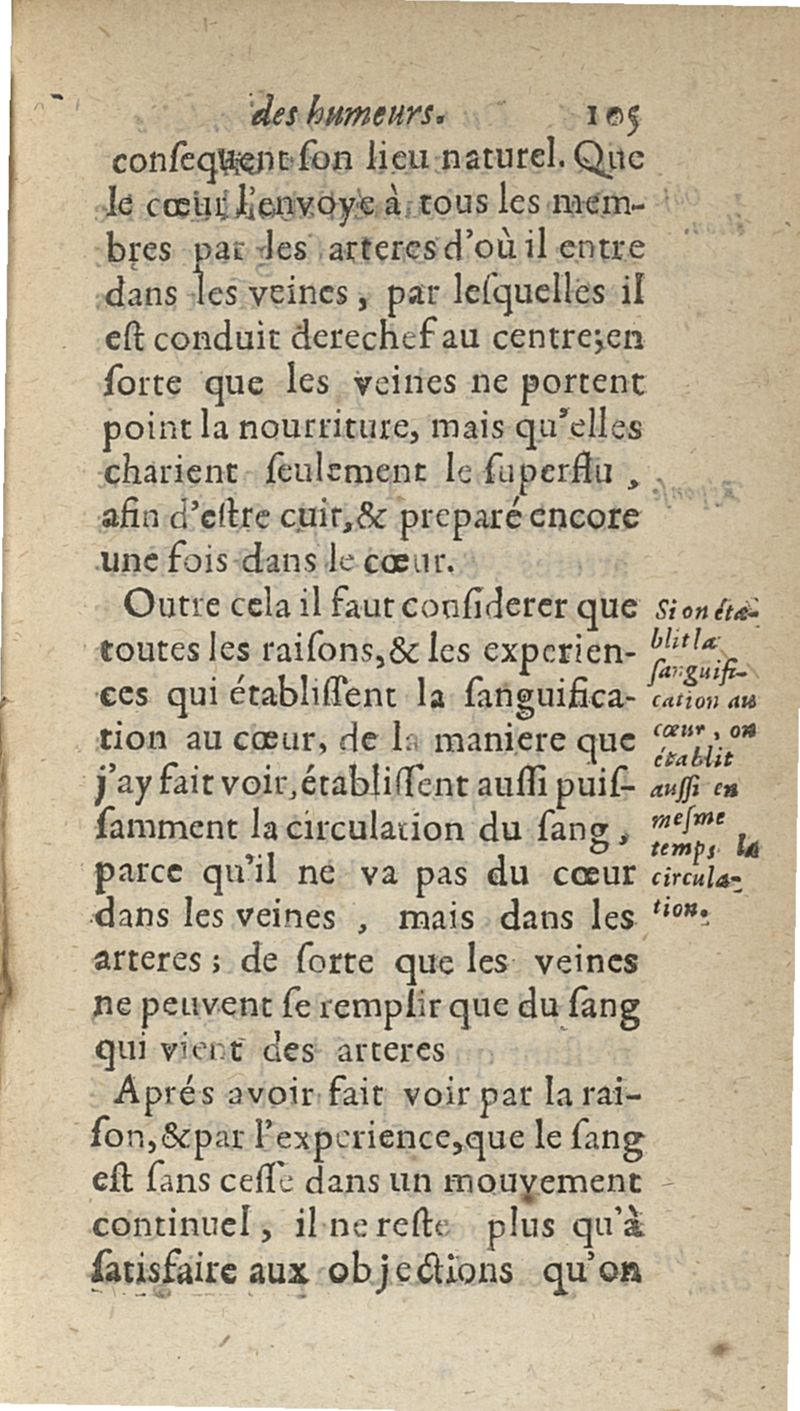 des humeurs. 105
conſequent ſon lieu naturel. Que
le cœur l'envoye à tous les mem-
bres par les arteres d'où il entre
dans les veines, par leſquelles il
eſt conduit derechef au centre; en
ſorte que les veines ne portent
point la nourriture, mais qu'elles
charient ſeulement le ſuperflu,
afin d'eſtre cuit, & preparé encore
une fois dans le cœur.
Outre cela il faut conſiderer que
toutes les raiſons, & les experien-
ces qui établiſſent la ſanguifica-
tion au cœur, de la maniere que
j'ay fait voir, établiſſent auſſi puiſ-
ſamment la circulation du ſang,
parce qu'il ne va pas du cœur
dans les veines, mais dans les
arteres; de ſorte que les veines
ne peuvent ſe remplir que du ſang
qui vient des arteres
Aprés avoir fait voir par la rai-
ſon, & par l'experience, que le ſang
eſt ſans ceſſe dans un mouvement
continuel, il ne reſte plus qu'à
ſatisfaire aux objections qu'on
Si on éta-
blit la
ſanguifi-
cation au
cœur, on
établit
auſſi en
meſme
temps la
circula-
tion.